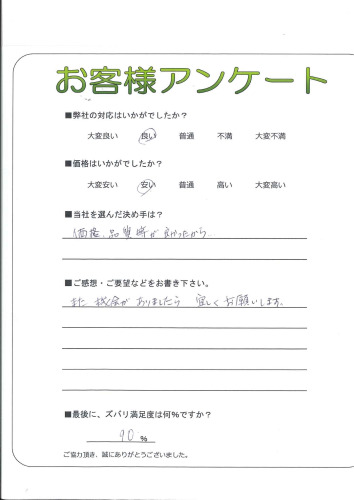 お客様アンケート
■弊社の対応はいかがでしたか?
大変良い 良い 普通 不満 大変不満
■価格はいかがでしたか?
大変安い 安い 普通 高い 大変高い
■当社を選んだ決め手は?
価格、品質等が良かったから。
■ご感想・ご要望などをお書き下さい。
また機会がありましたら 宜しくお願いします。
■最後に、ズバリ満足度は何%ですか?
90 %
ご協力頂き、誠にありがとうございました。